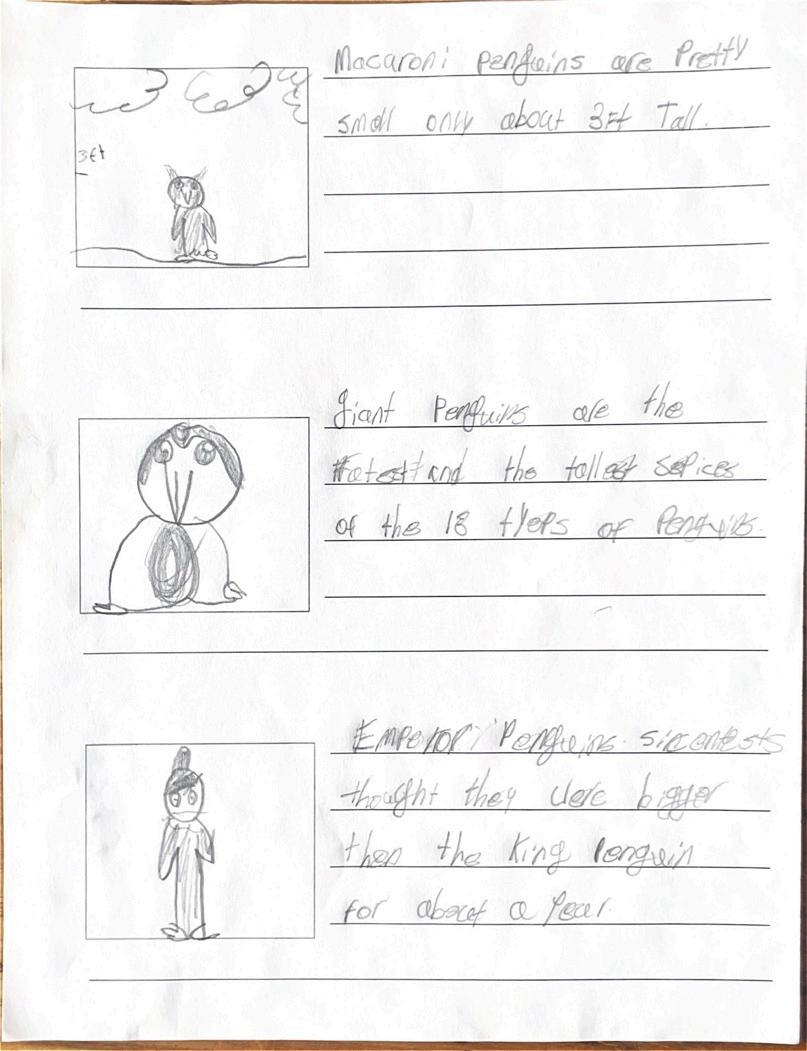 Macaroni Penguins are Pretty
small only about 3Ft Tall.
3ft
Giant Penguins are the
fatest and the tallest sepices
of the 18 tyeps of Penguins.
Emperor Penguins. sincentests
thought they were bigger
then the King Penguin
for about a Year.